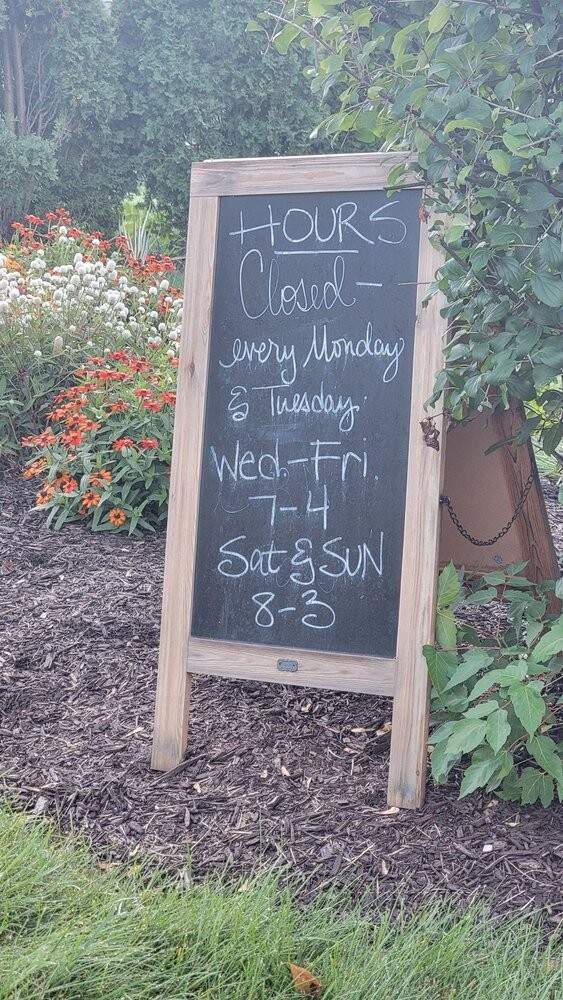 HOURS
Closed -
every Monday
& Tuesday.
Wed.-Fri.
7-4
Sat & SUN
8-3